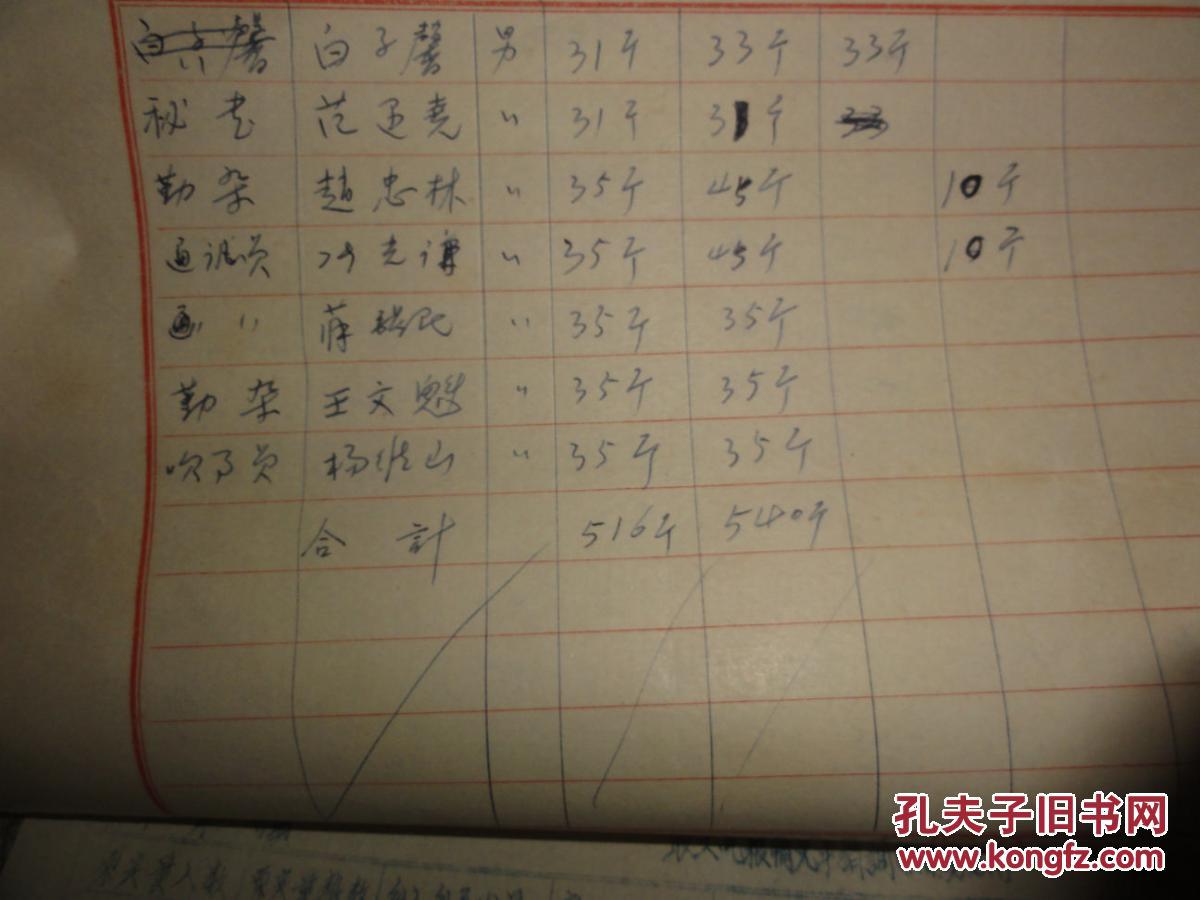 白子馨 白子馨 男 31斤 33斤 33斤
秘书 范迺尧 〃 31斤 31斤 33
勤杂 趙忠林 〃 35斤 45斤 10斤
通讯员 冯克谦 〃 35斤 45斤 10斤
通 〃 蒋 民 〃 35斤 35斤
勤杂 王文魁 〃 35斤 35斤
炊事员 杨 山 〃 35斤 35斤
合計 516斤 540斤
孔夫子旧书网
www.kongfz.com